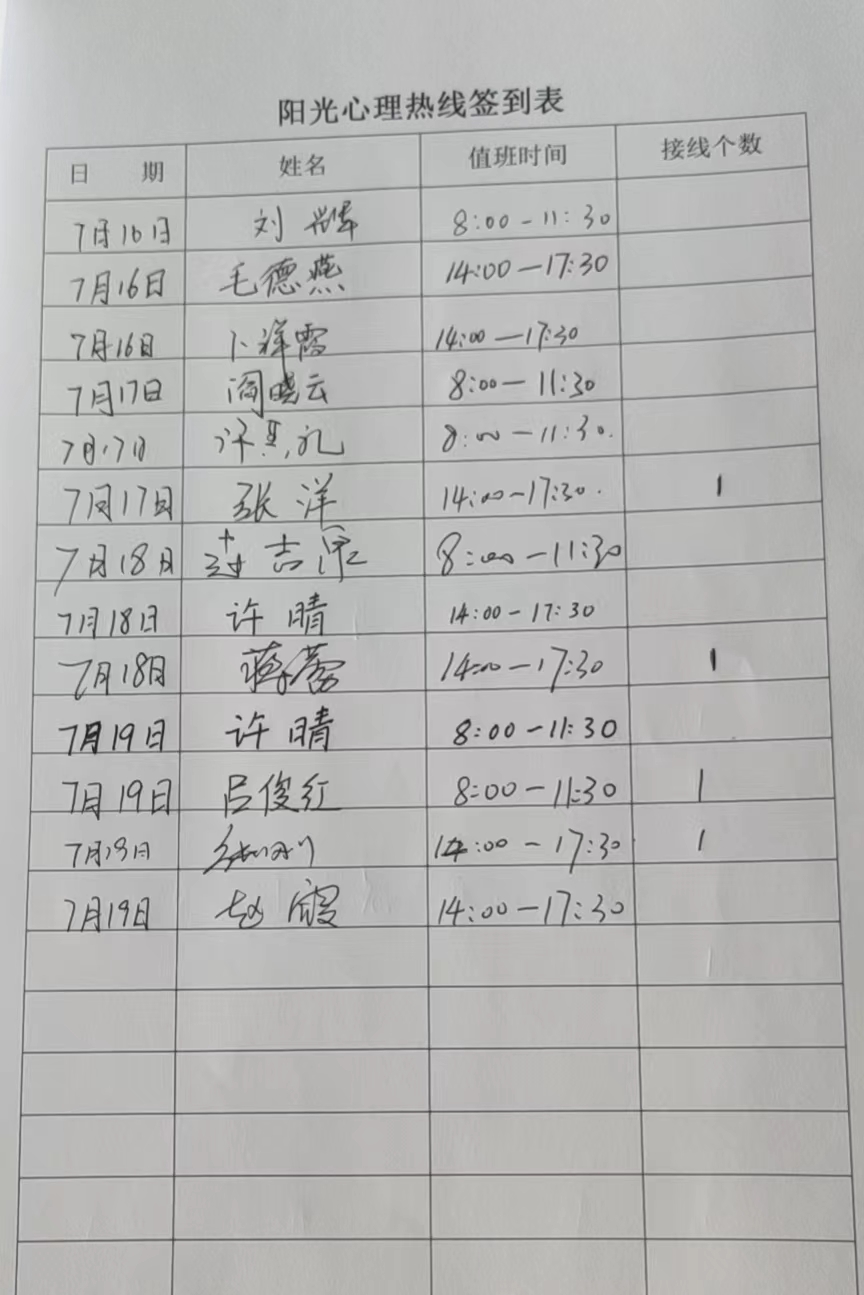 阳光心理热线签到表
日 期 姓名 值班时间 接线个数
7月16日 刘 8:00-11:30
7月16日 毛德燕 14:00-17:30
7月16日 卜祥霞 14:00-17:30
7月17日 阎晓云 8:00-11:30
7月17日 许 礼 8:00-11:30.
7月17日 张洋 14:00-17:30. 1
7月18日 吉 8:00-11:30
7月18日 许晴 14:00-17:30
7月18日 蒋蕾 14:00-17:30 1
7月19日 许晴 8:00-11:30
7月19日 吕俊红 8:00-11:30 1
7月19日 14:00-17:30 1
7月19日 赵霞 14:00-17:30